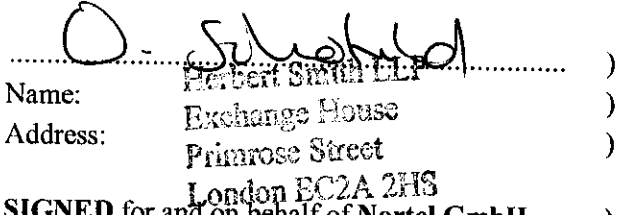 Herbert Smith LLP )
Name: Exchange House )
Address: Primrose Street )
London EC2A 2HS
SIGNED for and on behalf of Nortel GmbH )